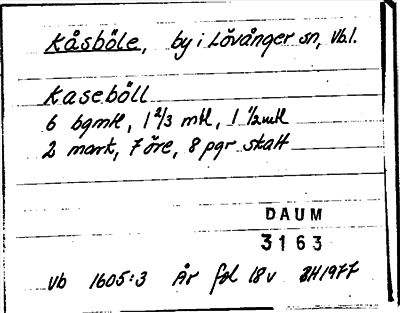 Kåsböle, by i Lövånger sn, Vb.l.
Kaseböll
6 bgmtl, 1 2/3 mtl, 1 1/2 mtl
2 mark, 7 öre, 8 pgr skatt
DAUM
3163
Vb 1605:3 År fol 18v BH1977